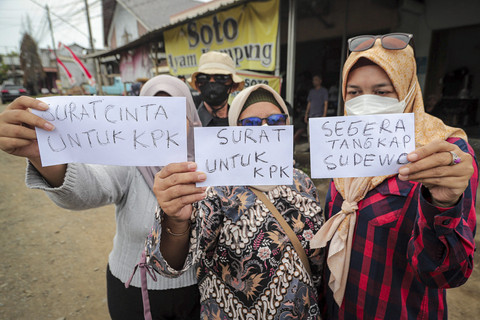 Soto
Ayam Kampung
SURAT CINTA
UNTUK KPK
SURAT
UNTUK KPK
SEGERA
TANGKAP
SUDEWO